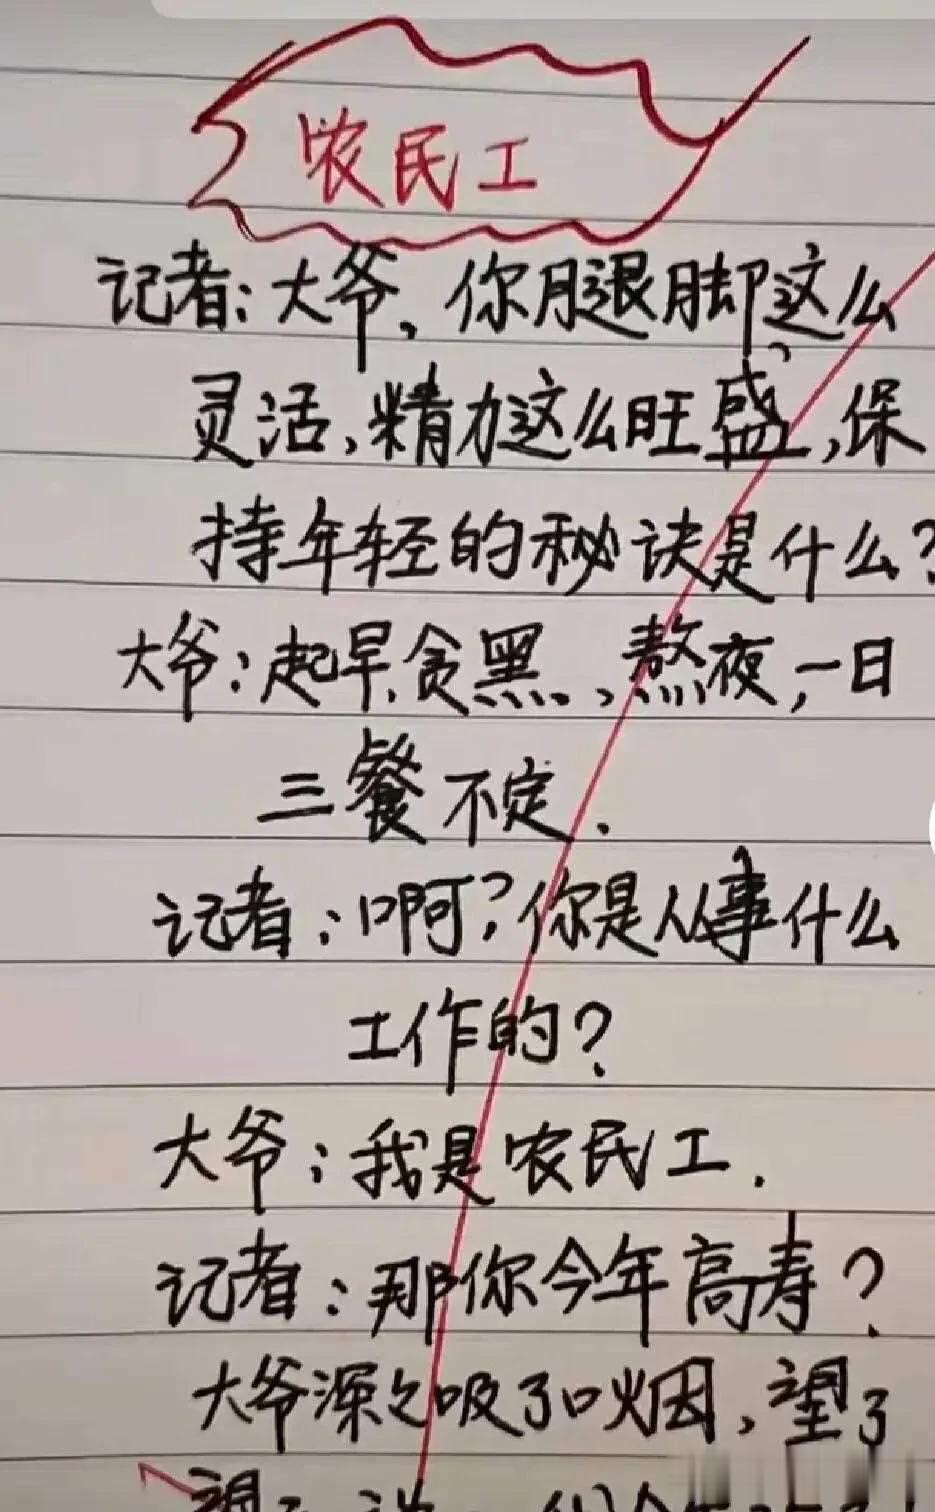 农民工
记者:大爷,你腿脚这么
灵活,精力这么旺盛,保
持年轻的秘诀是什么?
大爷:起早贪黑、熬夜,一日
三餐不定.
记者:啊?你是从事什么
工作的?
大爷:我是农民工.
记者:那你今年高寿?
大爷深深吸了口烟,望了